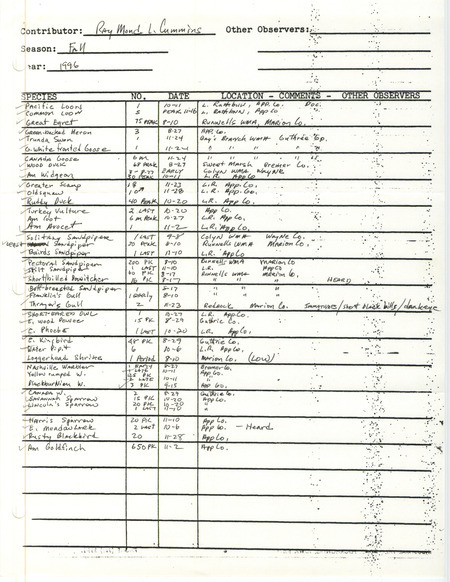 Contributor: Raymond L. Cummins Other Observers:
Season: Fall
ear: 1996
SPECIES NO. DATE LOCATION - COMMENTS - OTHER OBSERVERS
Pacific Loon 1 10-11 L. Rathbun, App. Co. Doc.
Common Loon 5 PEAK 11-16 L. Rathbun, App Co.
Great Egret 75 PEAK 8-10 Runnells WMA, Marion Co.
Green-backed Heron 3 8-27 App. Co.
Tundra Swan 1 11-24 Bay's Branch WMA Guthrie Co.
G. White fronted Goose 1 11-24 " " " "
Canada Goose 11-24 " " "
Wood Duck 68 PEAK 8-29 Sweet Marsh Bremer Co.
Am Wigeon EARLY Colyn WMA Wayne
30 PEAK 10-11 L.R. App Co
Greater Scaup 18 11-23 L.R. App Co.
Oldsquaw 1 11-28 L.R. App. Co.
Ruddy Duck 40 PEAK 10-20 L.R. App Co.
Turkey Vulture 2 LAST 10-20 App Co.
Am Coot 10-27 L.R. App Co.
Am Avocet 1 11-2 L.R. App Co.
Solitary Sandpiper 1 LAST 9-8 Colyn WMA Wayne Co.
Sandpiper 20 PEAK 8-10 Runnells WMA Marion Co.
Bairds Sandpiper 1 LAST L.R. App Co
Pectoral Sandpiper 200 PK 8-10 Runnells WMA Marion Co
Stilt Sandpiper 1 LAST 11-10 L.R. App Co
Shortbilled Dowitcher 8-17 Runnells WMA Marion Co.
16 PK 8-17 " " " HEARD
Buff-breasted Sandpiper " "
Franklin's Gull 1 EARLY 8-10 " "
Thayer's Gull 2 11-23 Redrock Marion Co.
Short-eared Owl 1 10-29 L.R. App Co.
15 PK 8-29 Guthrie Co.
E. Phoebe 1 LAST 10-20 L.R. App Co.
E. Kingbird 48 PK 8-29 Guthrie Co.
Water Pipit 6 10-6 L.R. App Co.
Loggerhead Shrike 1 Period 8-10 Marion Co. (Low)
Nashville Warbler 1 EARLY 8-27 Bremer Co.
Yellow rumped W. 10-11 App Co.
10-11 "
Blackburnian W. 3 PK 9-15 App Co.
Canada W. 2 8-29 Guthrie Co.
Savannah Sparrow 15 PK 10-20 App Co.
Lincoln's Sparrow 20 PK 10-20 "
1 LAST 11-10 "
Harris Sparrow 20 PK 11-10 App Co.
E. Meadowlark 2 LAST 10-6 App Co - Heard
Rusty Blackbird 20 11-28 App Co.
Am Goldfinch 650 PK 11-2 App Co.